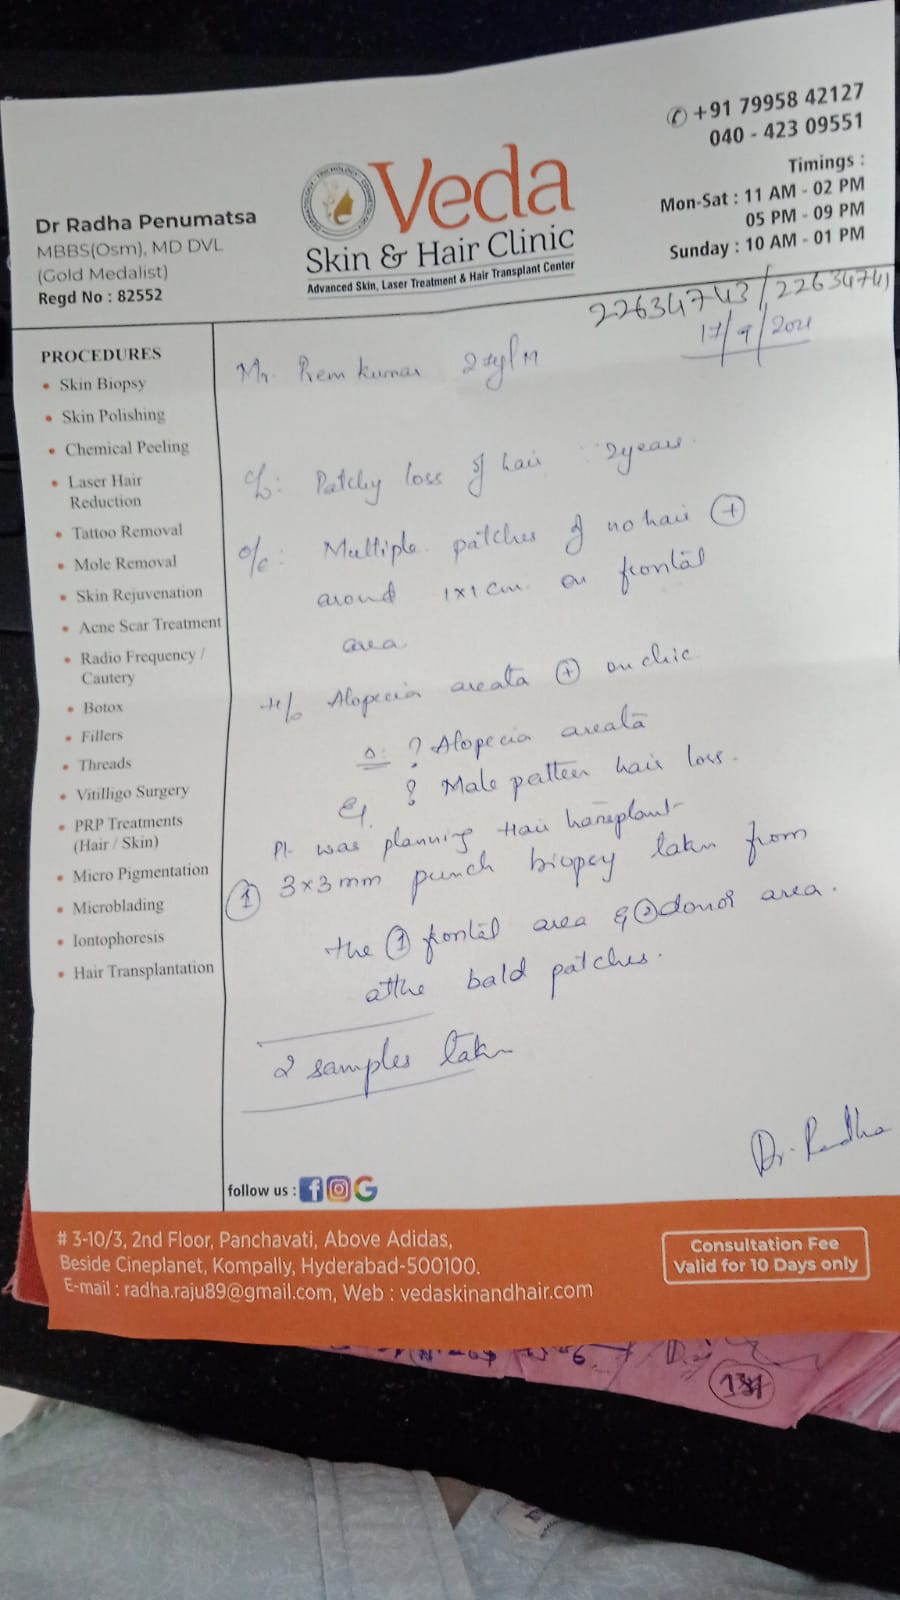 +91 79958 42127
040 - 423 09551
Timings :
Mon-Sat : 11 AM - 02 PM
05 PM - 09 PM
Sunday : 10 AM - 01 PM
Dr Radha Penumatsa
MBBS(Osm), MD DVL
(Gold Medalist)
Regd No : 82552
Veda
Skin & Hair Clinic
Advanced Skin, Laser Treatment & Hair Transplant Center
22634743/22634741
17/9/2021
PROCEDURES
• Skin Biopsy
• Skin Polishing
• Chemical Peeling
• Laser Hair
Reduction
• Tattoo Removal
• Mole Removal
• Skin Rejuvenation
• Acne Scar Treatment
• Radio Frequency /
Cautery
• Botox
• Fillers
• Threads
• Vitilligo Surgery
• PRP Treatments
(Hair / Skin)
• Micro Pigmentation
• Microblading
• Iontophoresis
• Hair Transplantation
Mr. Prem kumar
Patchy loss of hair 2years.
O/E: Multiple patches of no hair (+)
around 1x1 cm. on frontal
area.
H/o Alopecia areata (+) on chic
Δ: ? Alopecia areata
? Male pattern hair loss.
Pt. was planning Hair transplant
(1) 3x3mm punch biopsy taken from
the (1) frontal area & (2) donor area.
at the bald patches.
2 samples taken
Dr. Radha
follow us :
# 3-10/3, 2nd Floor, Panchavati, Above Adidas,
Beside Cineplanet, Kompally, Hyderabad-500100.
E-mail : radha.raju89@gmail.com, Web : vedaskinandhair.com
Consultation Fee
Valid for 10 Days only